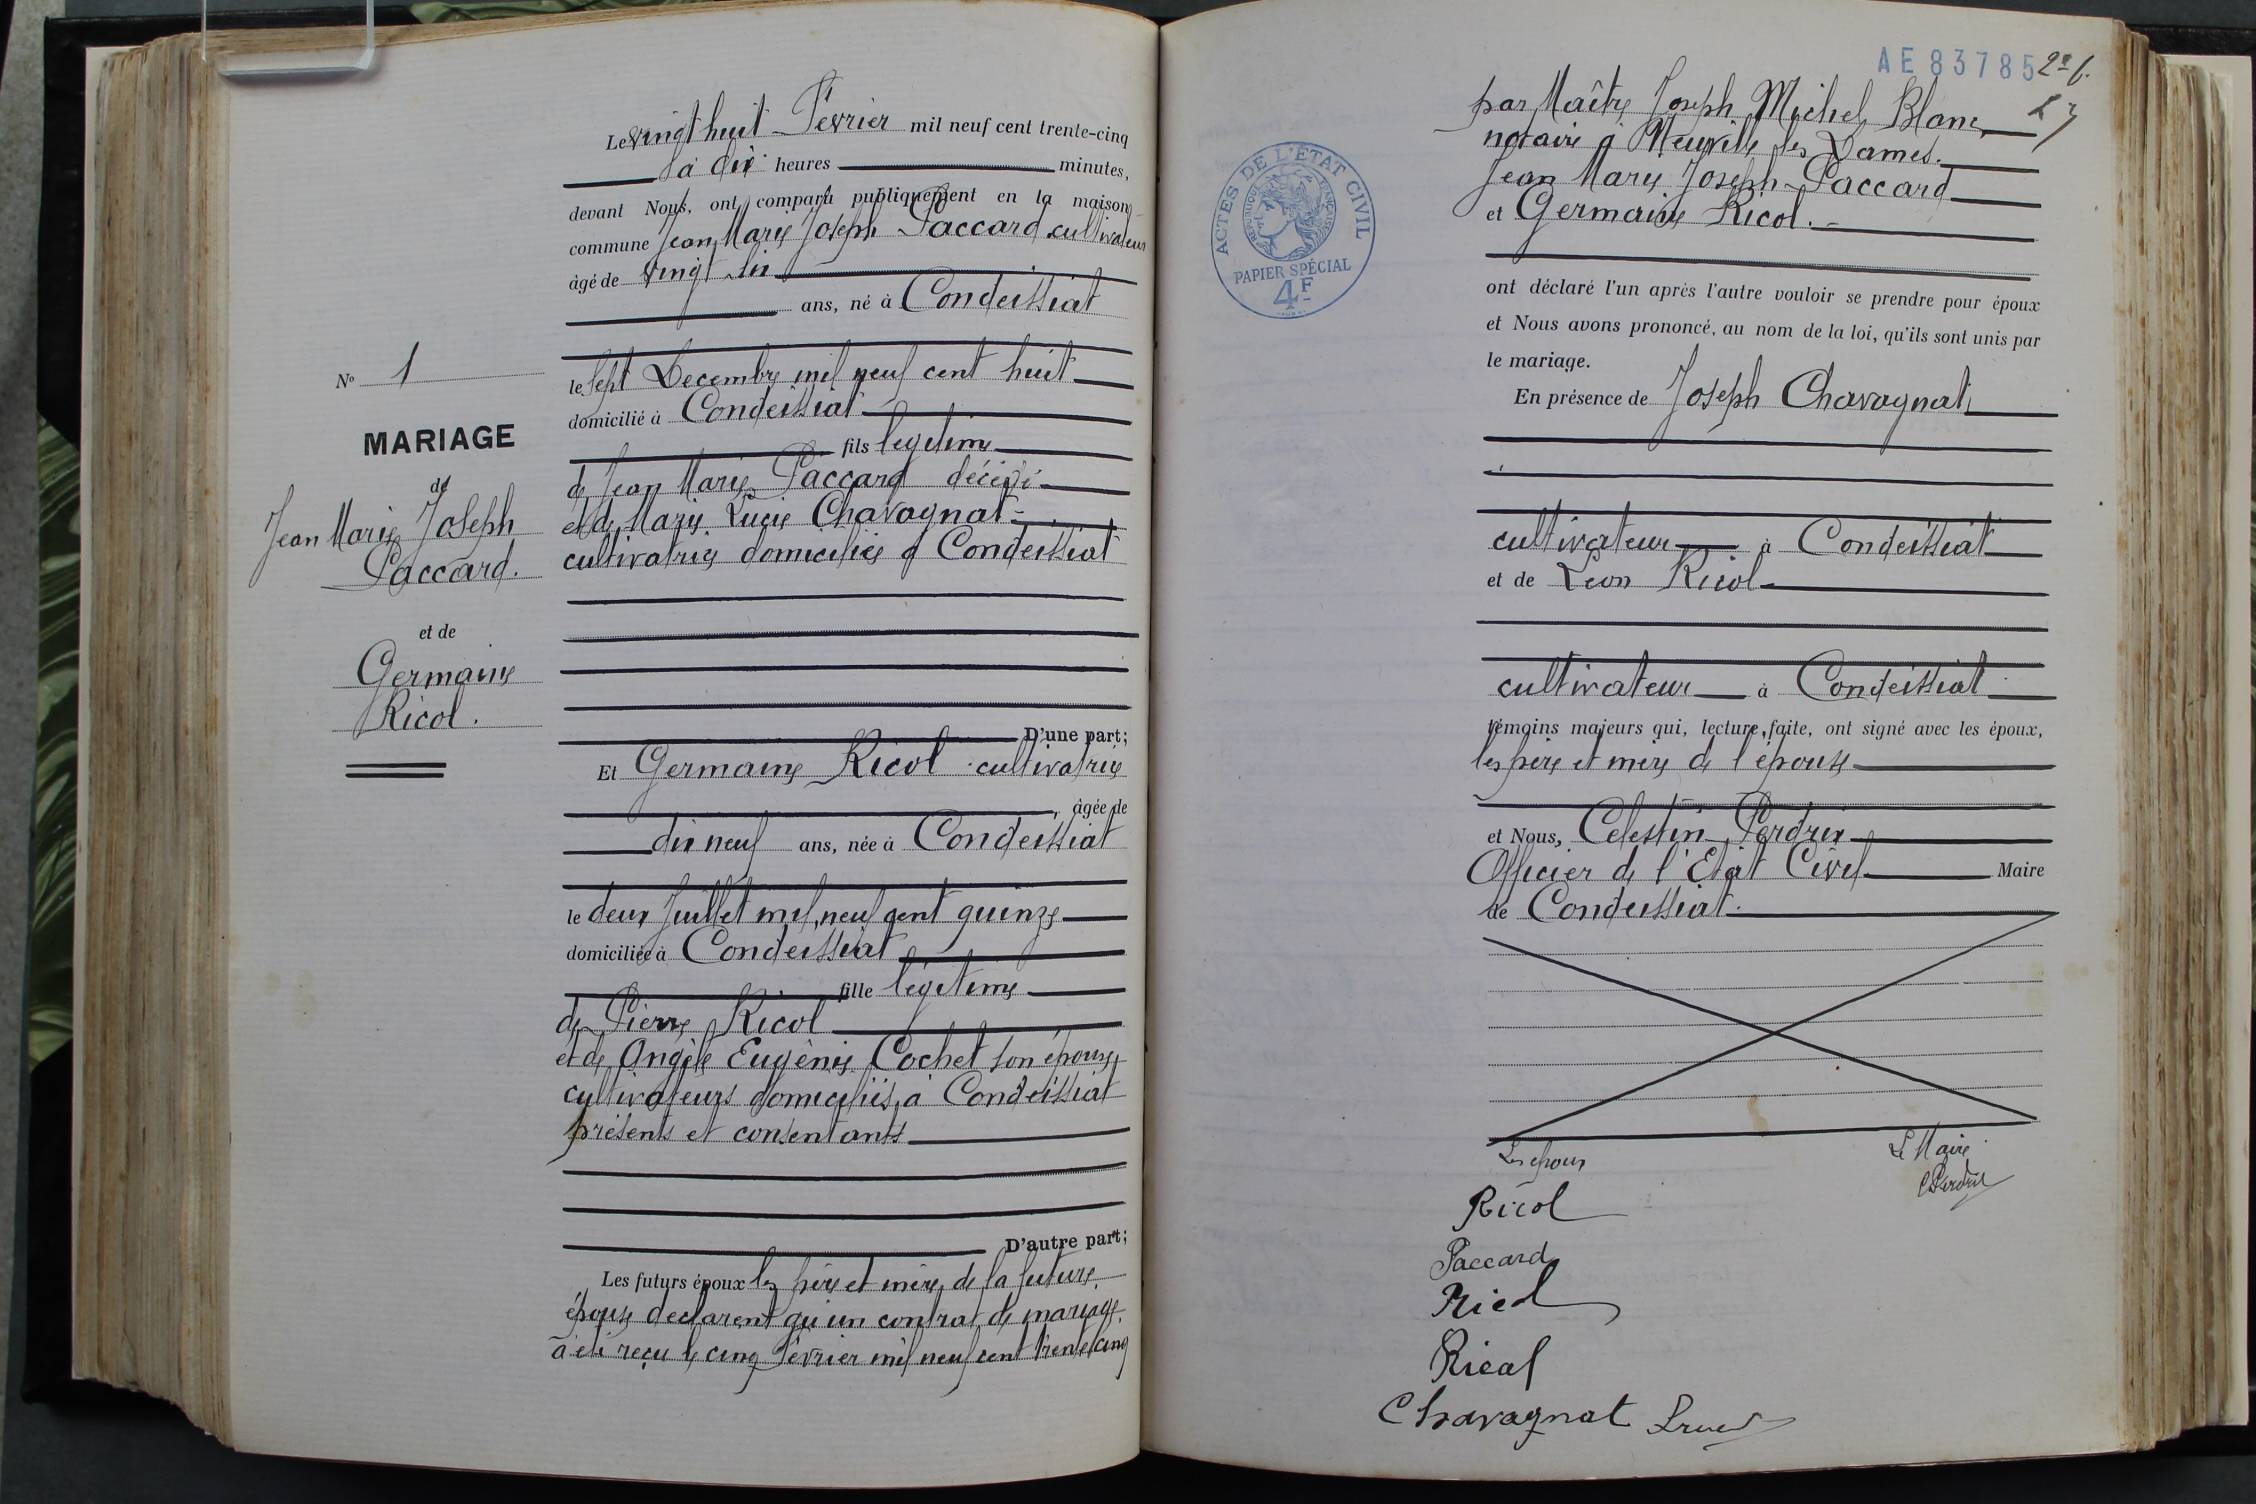 Le vingt huit Février mil neuf cent trente-cinq
à dix heures minutes,
devant Nous, ont comparu publiquement en la maison
commune Jean Marie Joseph Paccard cultivateur
âgé de vingt six
ans, né à Condeissiat
le sept Decembre mil neuf cent huit
domicilié à Condeissiat
fils legitime
de Jean Marie Paccard décédé
et de Marie Lucie Chavagnat
cultivatrice domiciliée à Condeissiat
D'une part;
Et Germaine Ricol cultivatrice
, âgée de
dix neuf ans, née à Condeissiat
le deux Juillet mil neuf cent quinze
domiciliée à Condeissiat
fille légitime
de Pierre Ricol
et de Angèle Eugènie Cochet son épouse
cultivateurs domiciliés à Condeissiat
présents et consentants
D'autre part;
Les futurs époux les père et mère de la future
épouse declarent qu'un contrat de mariage
a été reçu le cinq Février mil neuf cent trente cinq
No 1
MARIAGE
de
Jean Marie Joseph
Paccard.
et de
Germaine
Ricol.
AE 83785
par Maître Joseph Michel Blanc
notaire à Neuville les Dames.
Jean Marie Joseph Paccard
et Germaine Ricol.
ont déclaré l'un après l'autre vouloir se prendre pour époux
et Nous avons prononcé, au nom de la loi, qu'ils sont unis par
le mariage.
En présence de Joseph Chavagnat
cultivateur à Condeissiat
et de Léon Ricol
cultivateur à Condeissiat
témoins majeurs qui, lecture faite, ont signé avec les époux,
les père et mère de l'épouse
et Nous, Celestin Perdrix
Officier de l'Etat Civil Maire
de Condeissiat.
Les époux
Le Maire
CPerdrix
Ricol
Paccard
Ricol
Ricol
Chavagnat
ACTES DE L'ÉTAT CIVIL
RÉPUBLIQUE FRANÇAISE
PAPIER SPÉCIAL
4F